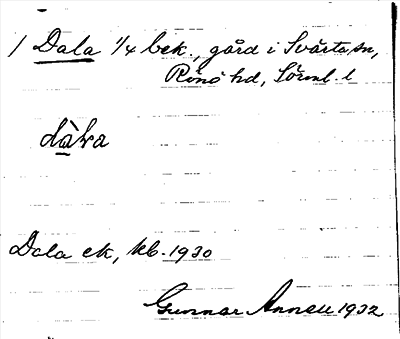 1 Dala 1/4 bek., gård i Svärta sn,
Rönö hd, Sörml. l
Dala ek, kb. 1930
Gunnar Annell 1932